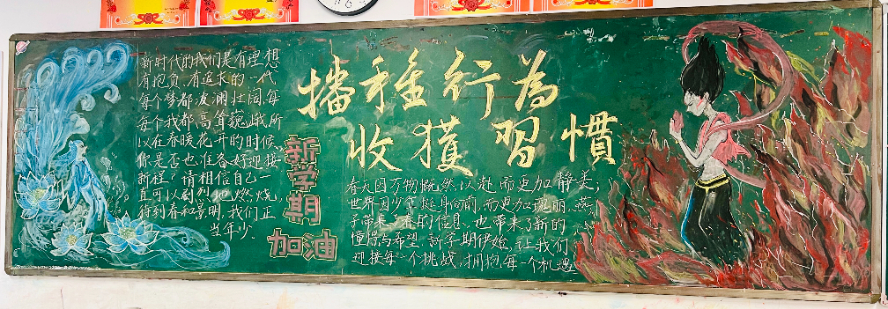 新时代的我们是有理想
有抱负,有追求的一代
每个梦都波澜壮阔,每
每个我都高耸巍峨,所
以在春暖花开的时候,
你是否也准备好迎接
新程,请相信自己一
直可以剧烈地燃烧,
待到春和景明,我们正
当年少.
播種行為
收獲習慣
新学期
加油
春天因万物慨然以赴而更加静美;
世界因少年挺身向前而更加瑰丽,燕
子带来了春的信息,也带来了新的
憧憬与希望.新学期伊始,让我们
迎接每一个挑战,拥抱每一个机遇